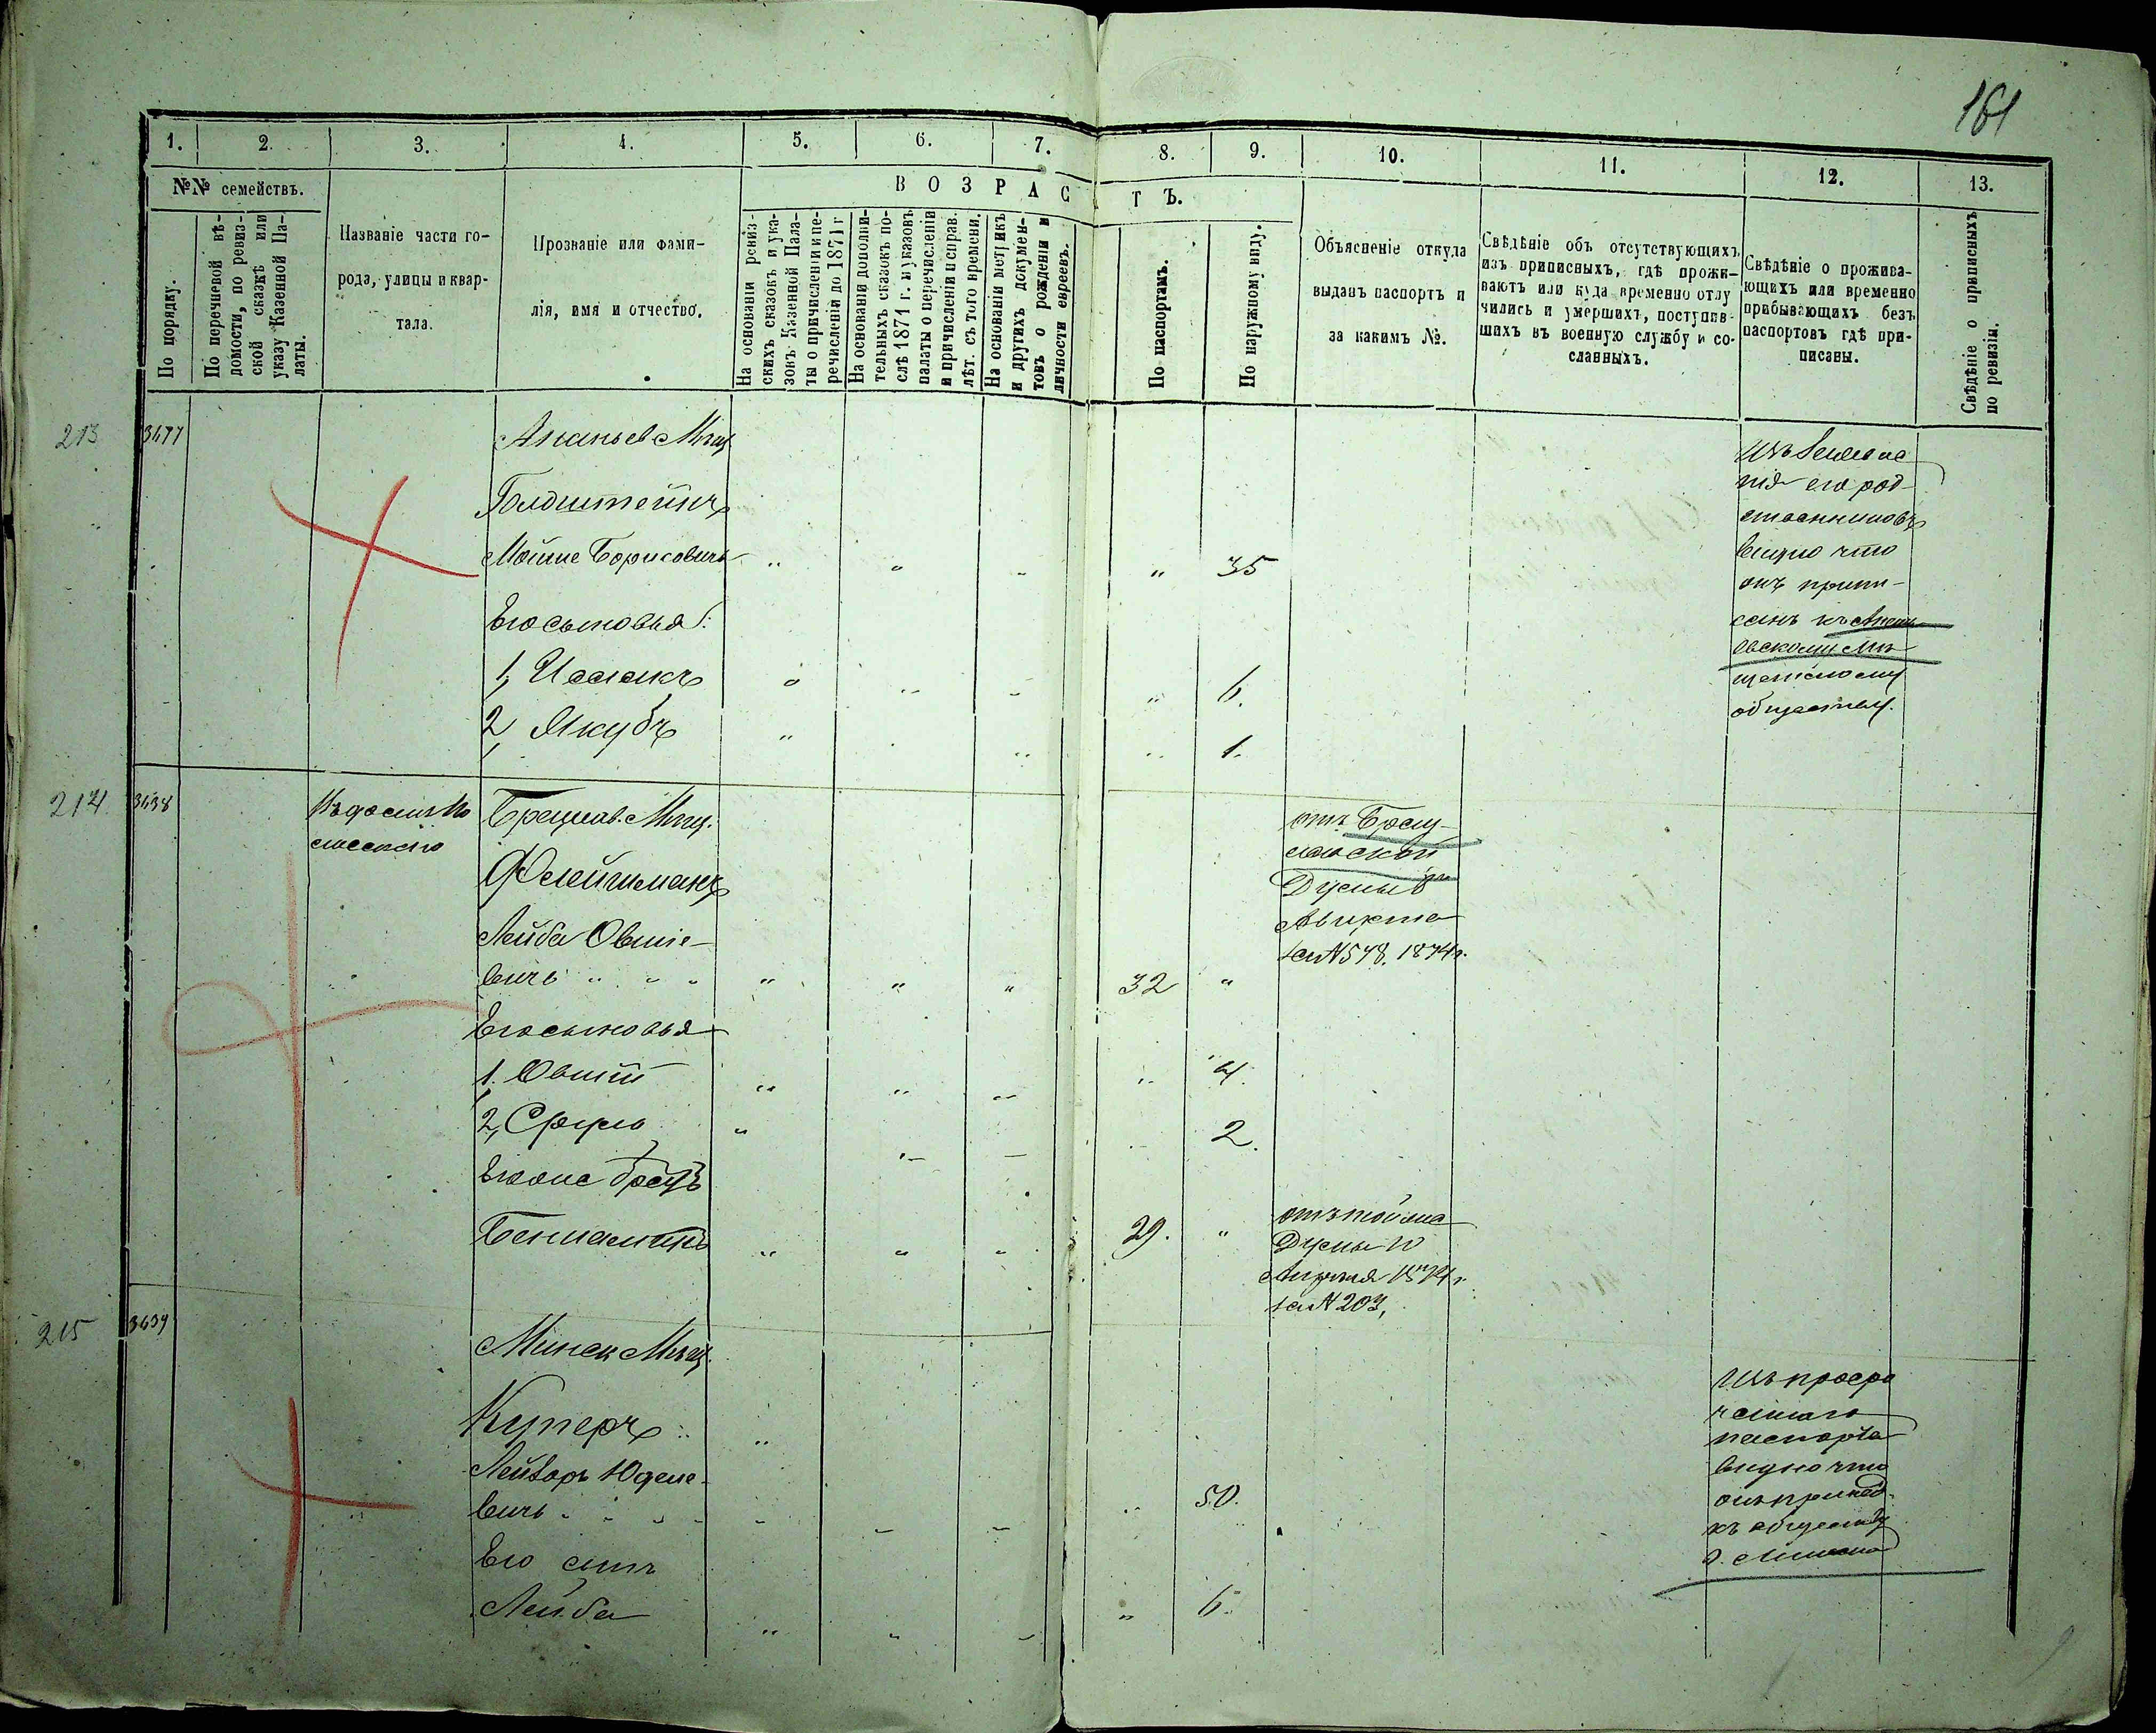 161
1. 2. 3. 4. 5. 6. 7. 8. 9. 10. 11. 12. 13.
№№ семействъ.
По порядку.
По перечневой вѣ-
домости, по ревиз-
ской сказкѣ или
указу Казенной Па-
латы.
Названіе части го-
рода, улицы и квар-
тала.
Прозваніе или фами-
лія, имя и отчество.
ВОЗРАСТЪ.
На основаніи ревиз-
скихъ сказокъ и ука-
зовъ Казенной Пала-
ты о причисленіи и пе-
речисленіи до 1871 г
На основаніи дополни-
тельныхъ сказокъ по-
слѣ 1871 г. и указовъ
палаты о перечисленіи
и причисленіи и справ.
лѣт. съ того времени.
На основаніи метрикъ
и другихъ докумен-
товъ о рожденіи и
личности евреевъ.
По паспортамъ.
По наружному виду.
Объясненіе откуда
выданъ паспортъ и
за какимъ №.
Свѣдѣніе объ отсутствующихъ
изъ приписныхъ, гдѣ прожи-
ваютъ или куда временно отлу
чились и умершихъ, поступив-
шихъ въ военную службу и со-
сланныхъ.
Свѣдѣніе о прожива-
ющихъ или временно
прибывающихъ безъ
паспортовъ гдѣ при-
писаны.
Свѣдѣніе о приписныхъ
по ревизіи.
213
Ананьев Мѣщ
Голдштейнъ
Мойше Борисовичъ " " " " 35
Его сыновья:
1, Исаакъ " " " " 6.
2, Якубъ " " " " 1.
видно что
онъ припи-
санъ къ Анань
евскому Мѣ-
щанскому
обществу.
214 3638
Брацлав. Мѣщ.
Флейшманъ
Лейба Овшіе-
вичъ " " " 32 "
Его сыновья
1. Овшій " " " " 4.
2, Сруль " " " " 2.
Его же братъ
Беніаминъ " " " 29. "
отъ Брац-
лавской
Думы 8
Августа
за № 578. 1874 г.
отъ той же
Думы 10
за № 203,
215 3639
Минск Мѣщ.
Куперъ
Лейзоръ Юделе-
вичъ " " " " 50.
Его сынъ
Лейба " " " " 6.
Изъ просро
ченнаго
паспорта
видно что
къ обществу
г. Минска